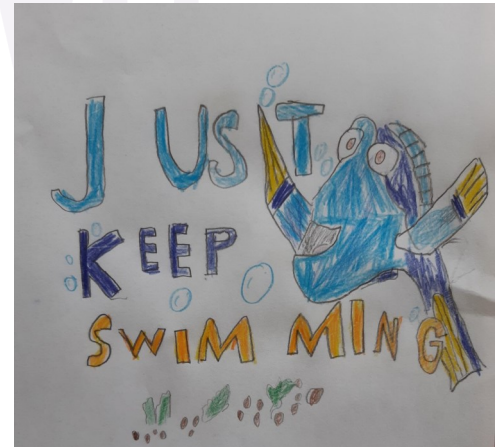 JUST
KEEP
SWIMMING